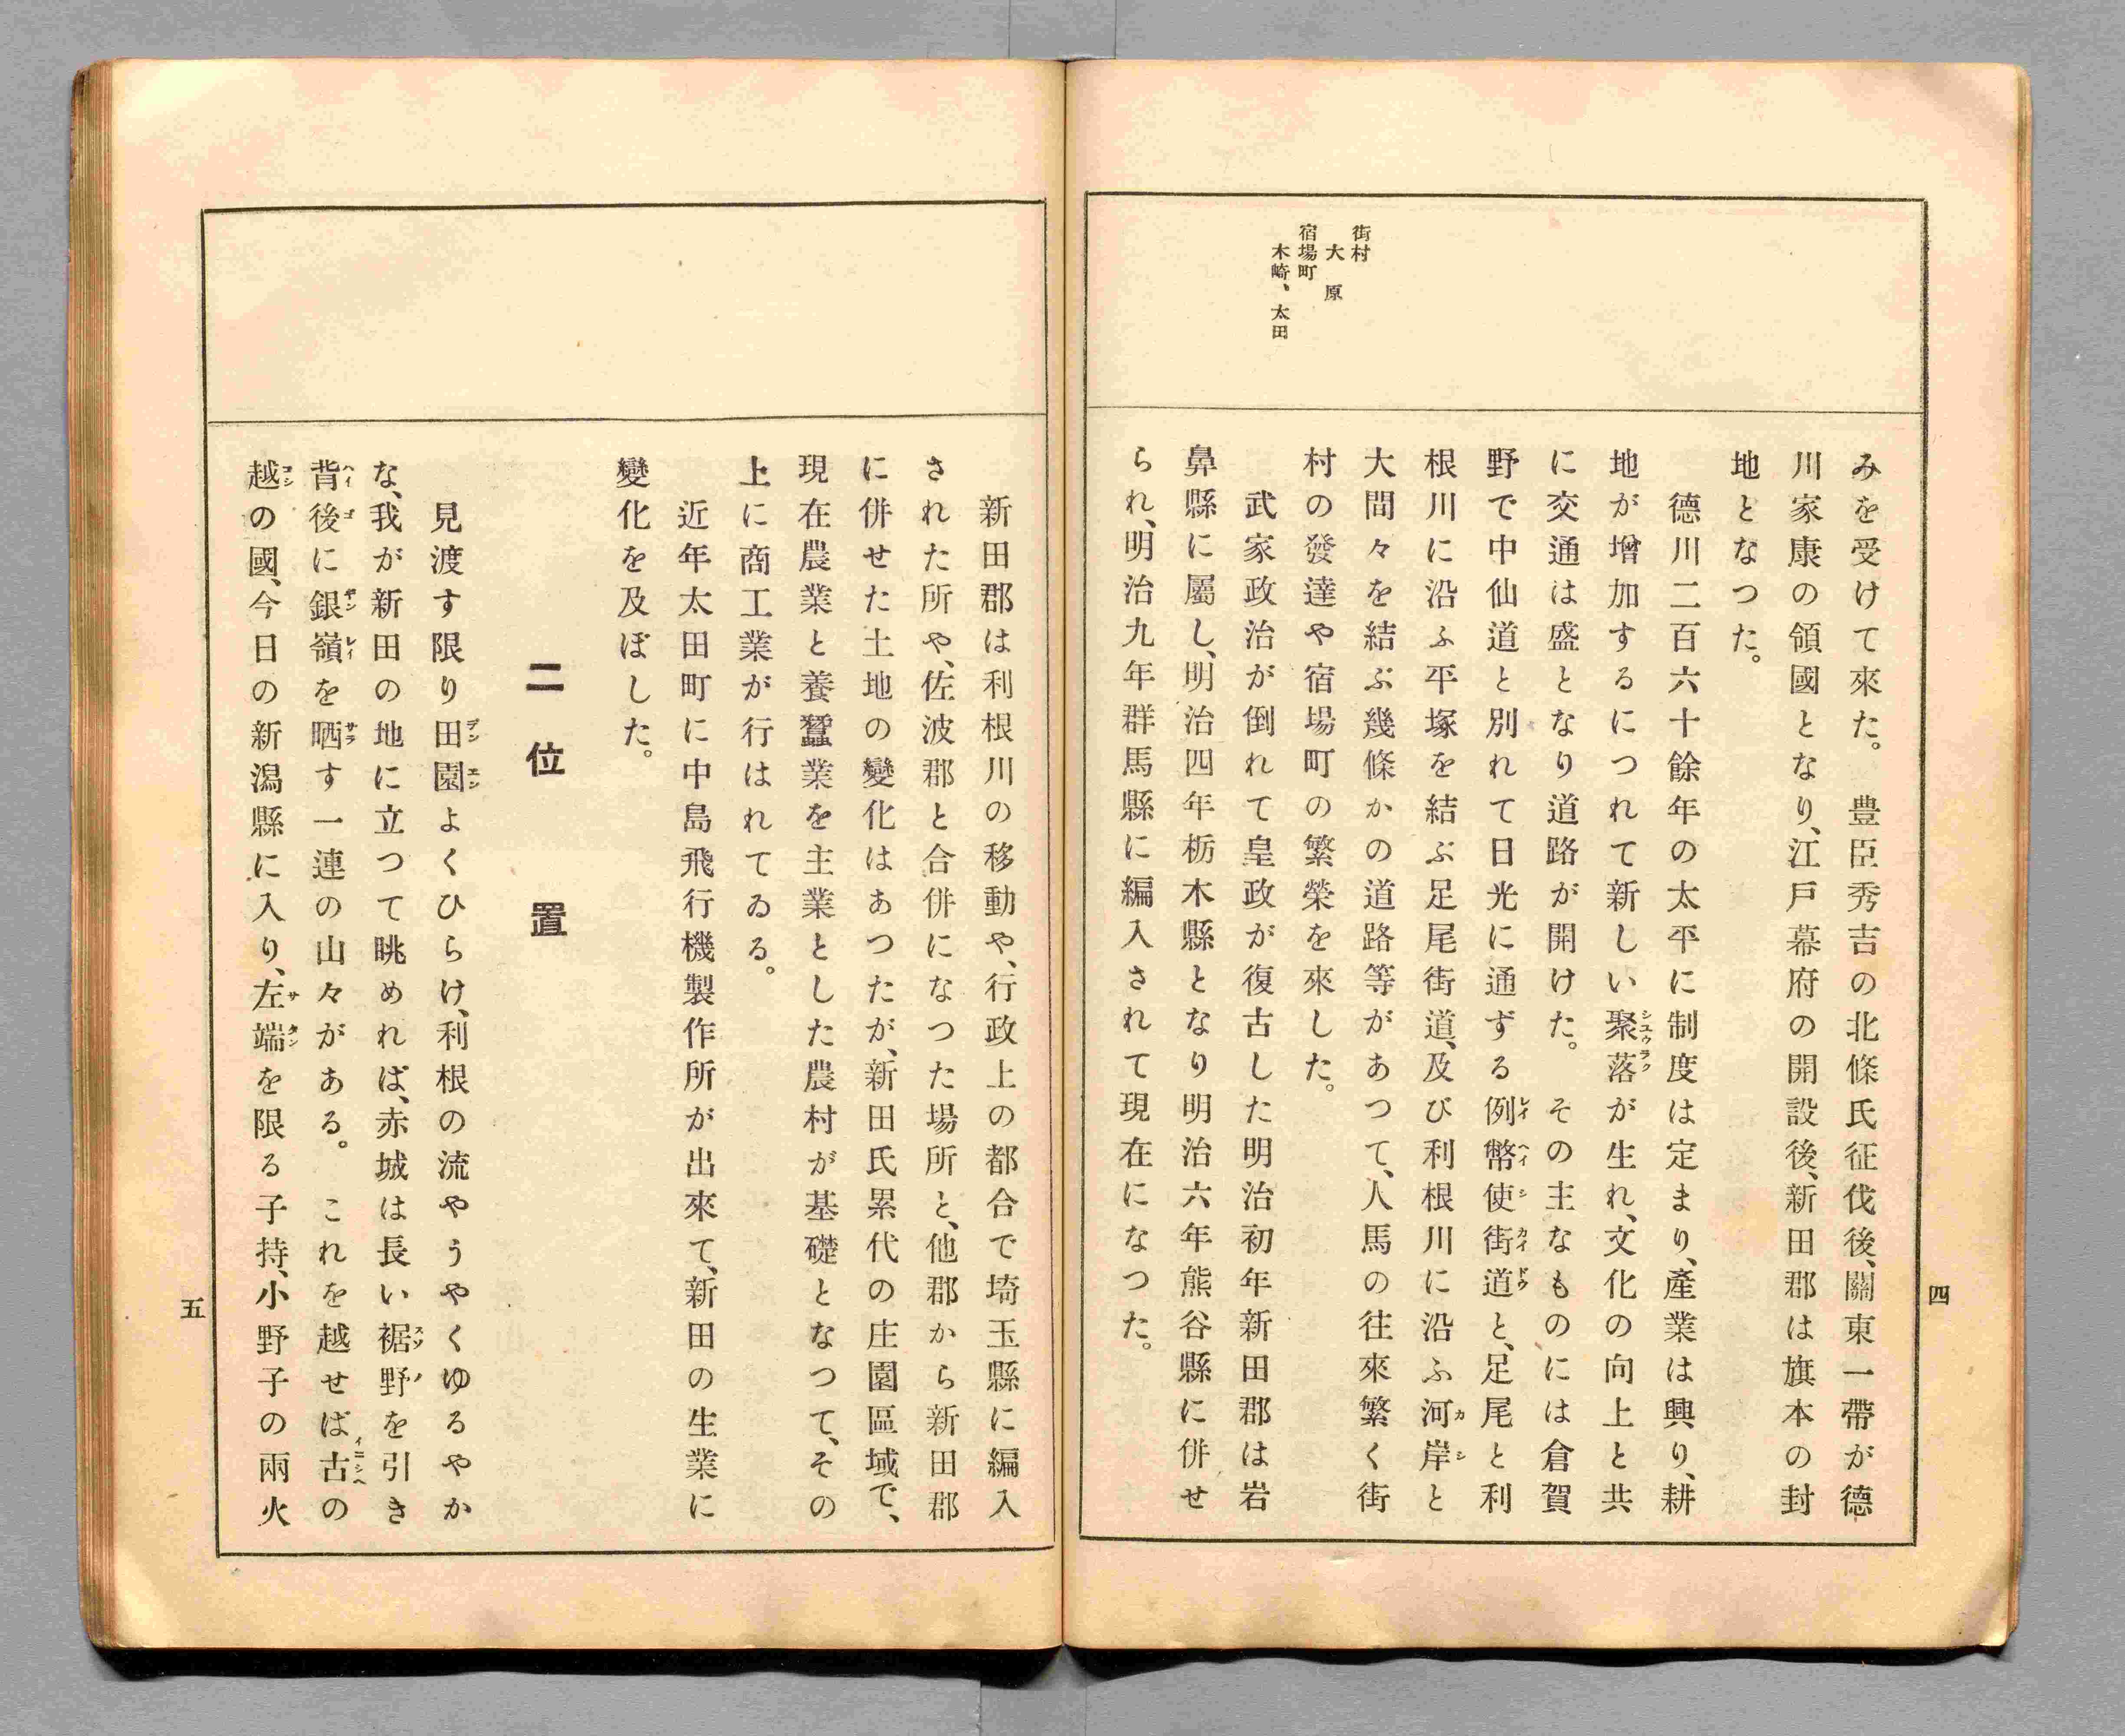 街村
大原
宿場町
木崎、太田
みを受けて來た。　豊臣秀吉の北條氏征伐後、關東一帶が德
川家康の領國となり、江戸幕府の開設後、新田郡は旗本の封
地となつた。
德川二百六十餘年の太平に制度は定まり、產業は興り、耕
地が增加するにつれて新しい聚落シユウラクが生れ、文化の向上と共
に交通は盛となり道路が開けた。　その主なものには倉賀
野で中仙道と別れて日光に通ずる例幣使街道レイヘイシカイドウと、足尾と利
根川に沿ふ平塚を結ぶ足尾街道、及び利根川に沿ふ河岸カシと
大間々を結ぶ幾條かの道路等があつて、人馬の往來繁く街
村の發達や宿場町の繁榮を來した。
武家政治が倒れて皇政が復古した明治初年新田郡は岩
鼻縣に屬し、明治四年栃木縣となり明治六年熊谷縣に併せ
られ、明治九年群馬縣に編入されて現在になつた。
四
新田郡は利根川の移動や、行政上の都合で埼玉縣に編入
された所や、佐波郡と合併になつた場所と、他郡から新田郡
に併せた土地の變化はあつたが、新田氏累代の庄園區域で、
現在農業と養蠶業を主業とした農村が基礎となつて、その
上に商工業が行はれてゐる。
近年太田町に中島飛行機製作所が出來て、新田の生業に
變化を及ぼした。
二　位置
見渡す限り田園デンエンよくひらけ、利根の流やうやくゆるやか
な、我が新田の地に立つて眺めれば、赤城は長い裾野スソノを引き
背後ハイゴに銀嶺ギンレイを晒サラす一連の山々がある。　これを越せば古イニシヘの
越コシの國、今日の新潟縣に入り、左端サタンを限る子持、小野子の兩火
五